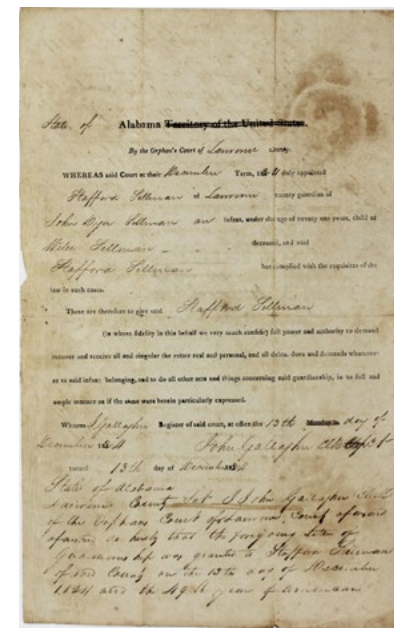 State of Alabama Territory of the United States.
By the Orphan's Court of Lawrence County.
WHEREAS said Court at their December Term, 1824 duly appointed
Stafford Sellman of Lawrence county guardian of
John Dyer Sellman an infant, under the age of twenty one years, child of
Sellman deceased, and said
Stafford Sellman has complied with the requisites of the
law in such cases.
These are therefore to give said Stafford Sellman
(in whose fidelity in this behalf we very much confide) full power and authority to demand
recover and receive all and singular the estate real and personal, and all debts, dues and demands whatsoev-
er to said infant belonging, and to do all other acts and things concerning said guardianship, in as full and
ample manner as if the same were herein particularly expressed.
Witness J Gallagher Register of said court, at office the 13th Monday day of
December 1824 John Gallagher Clk
Issued 13th day of December 1824
State of Alabama
Lawrence County I John Gallagher Clerk
of the Orphans Court of Lawrence County
do certify that the foregoing letter of
Guardianship was granted to Stafford Sellman
of said County on the 13th day of December
1824 and the 49th year of American